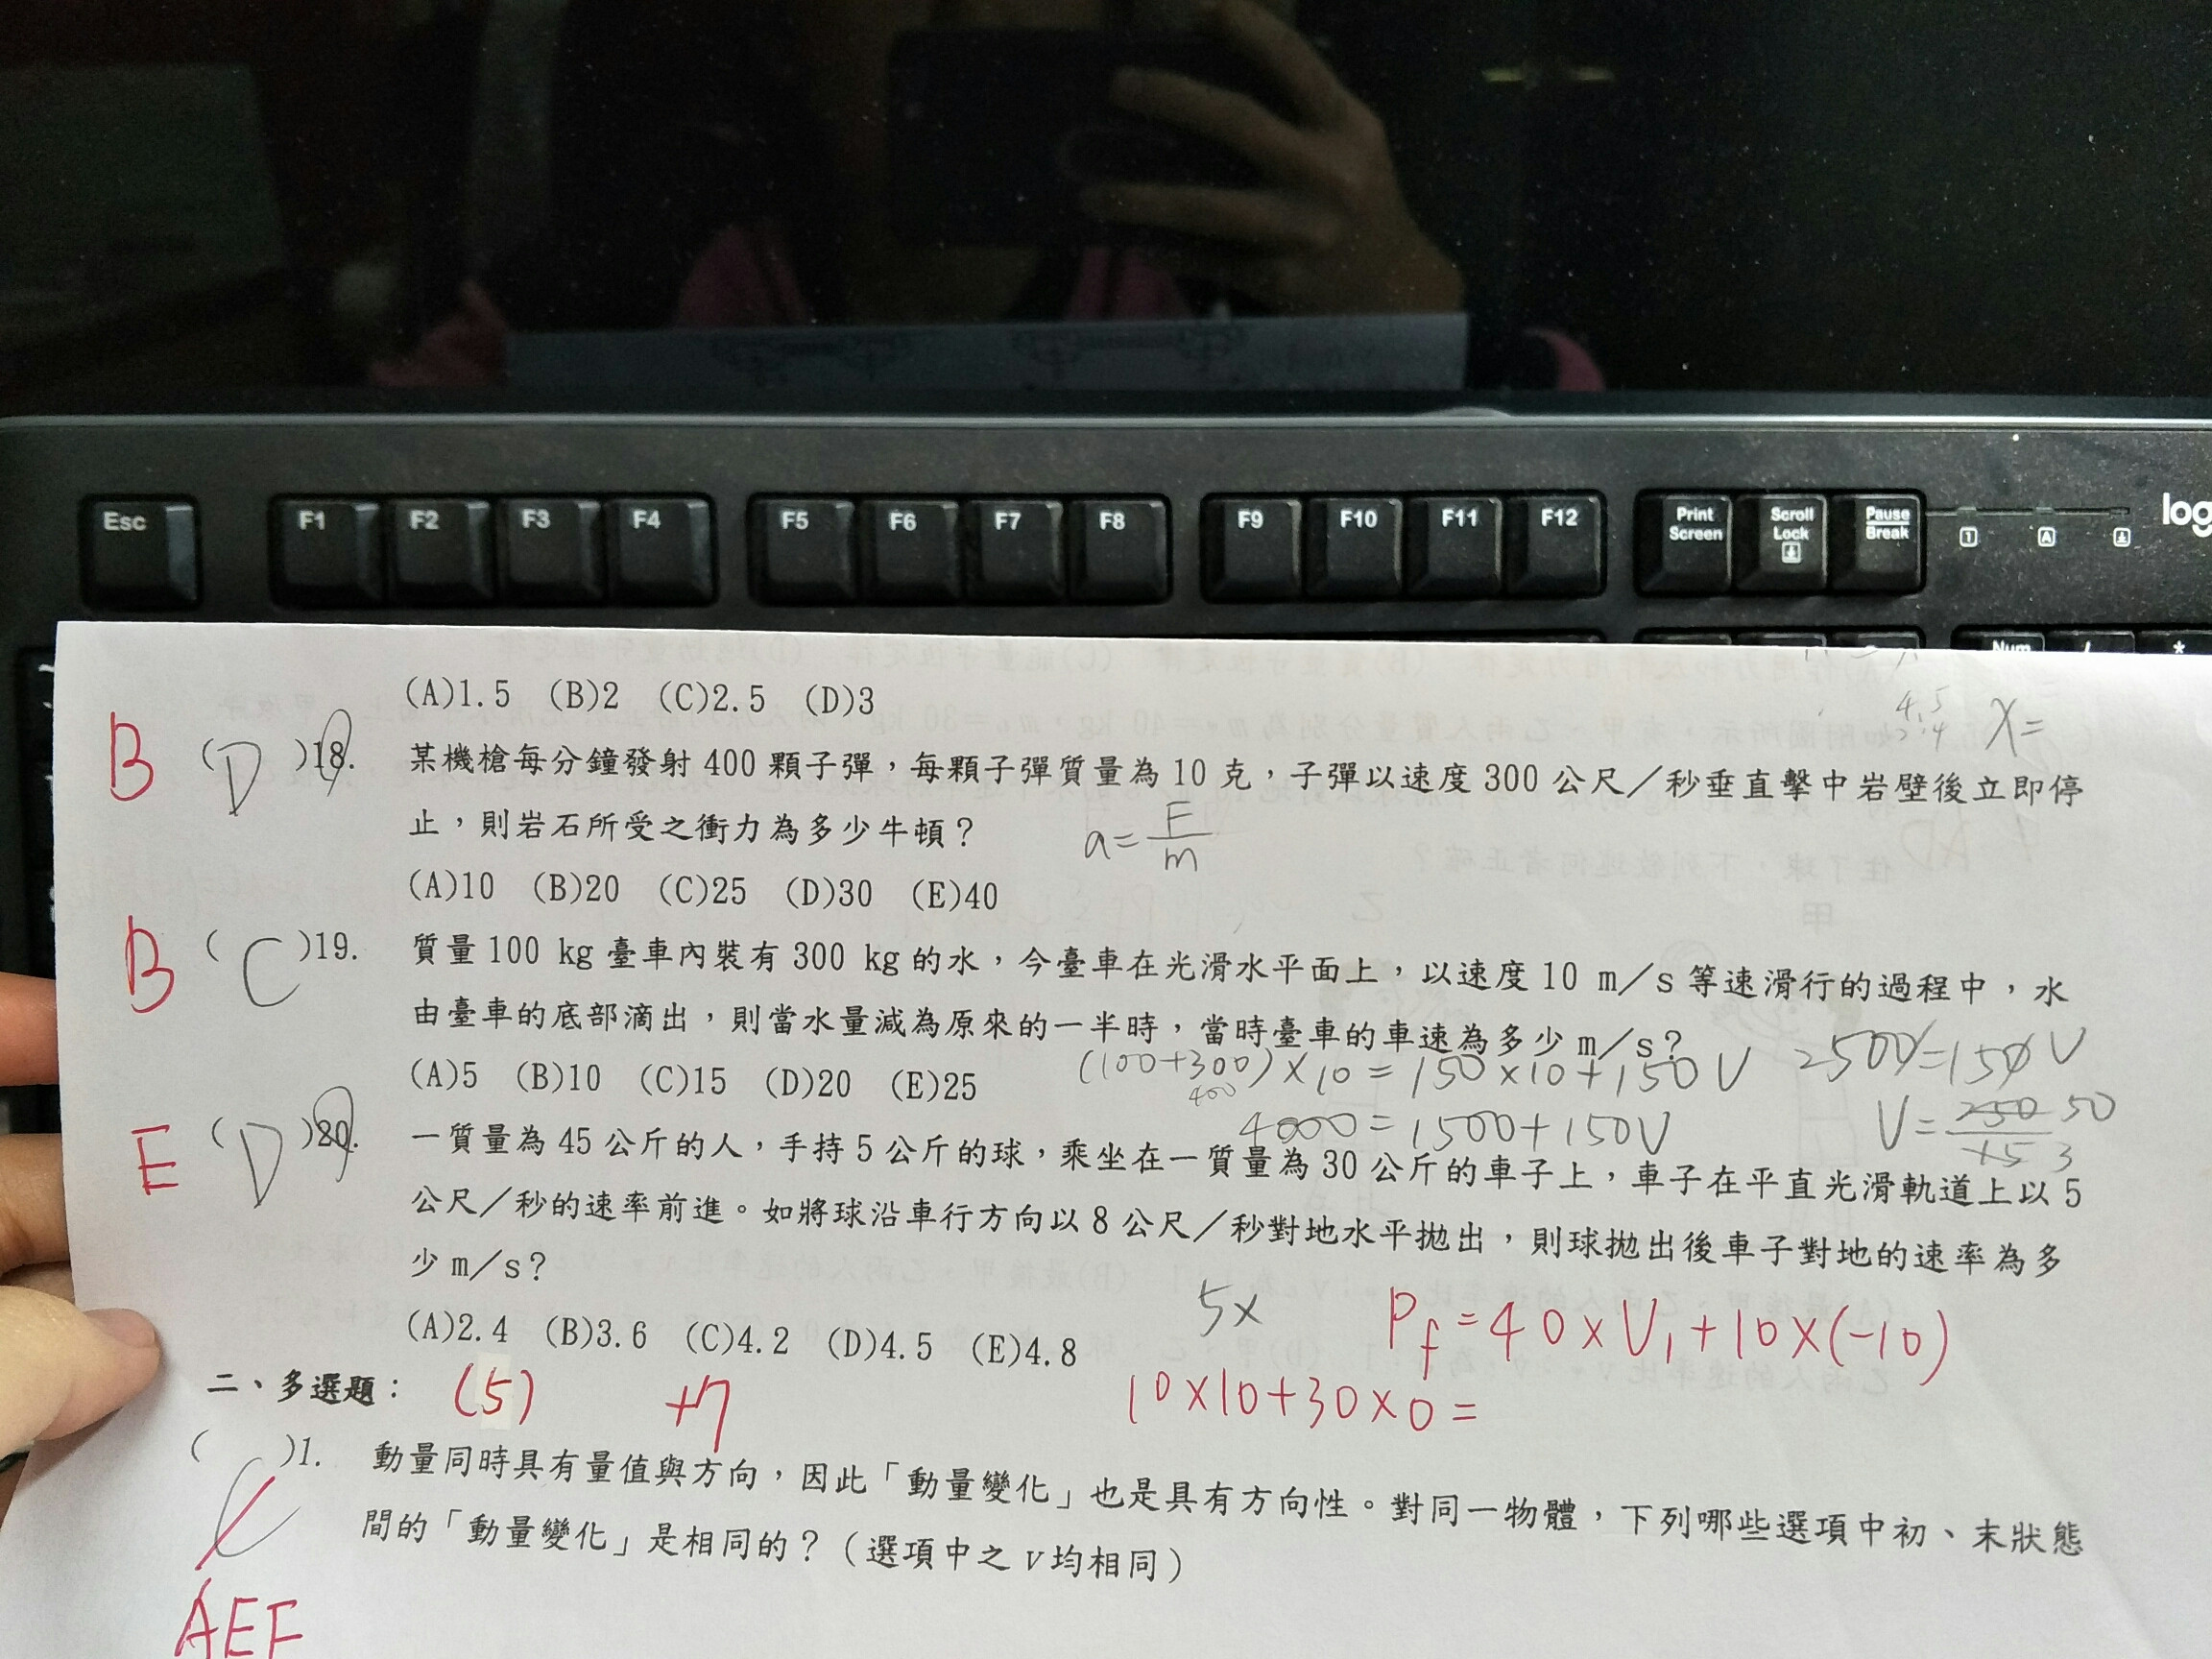 Esc F1 F2 F3 F4 F5 F6 F7 F8 F9 F10 F11 F12 Print Screen Scroll Lock Pause Break 1 A log
Num / *
(A)1.5 (B)2 (C)2.5 (D)3
4.5
X=
B (D)18. 某機槍每分鐘發射 400 顆子彈，每顆子彈質量為 10 克，子彈以速度 300 公尺／秒垂直擊中岩壁後立即停
止，則岩石所受之衝力為多少牛頓？
a=F/m
(A)10 (B)20 (C)25 (D)30 (E)40
B (C)19. 質量 100 kg 臺車內裝有 300 kg 的水，今臺車在光滑水平面上，以速度 10 m／s 等速滑行的過程中，水
由臺車的底部滴出，則當水量減為原來的一半時，當時臺車的車速為多少 m／s？
(A)5 (B)10 (C)15 (D)20 (E)25
(100+300)×10=150×10+150V
400
2500=150V
4000=1500+150V
V=250 50
15 3
E (D)20. 一質量為 45 公斤的人，手持 5 公斤的球，乘坐在一質量為 30 公斤的車子上，車子在平直光滑軌道上以 5
公尺／秒的速率前進。如將球沿車行方向以 8 公尺／秒對地水平拋出，則球拋出後車子對地的速率為多
少 m／s？
5×
(A)2.4 (B)3.6 (C)4.2 (D)4.5 (E)4.8
Pf=40×V1+10×(-10)
二、多選題： (5) +7
10×10+30×0=
( C )1. 動量同時具有量值與方向，因此「動量變化」也是具有方向性。對同一物體，下列哪些選項中初、末狀態
間的「動量變化」是相同的？（選項中之 V 均相同）
AEF